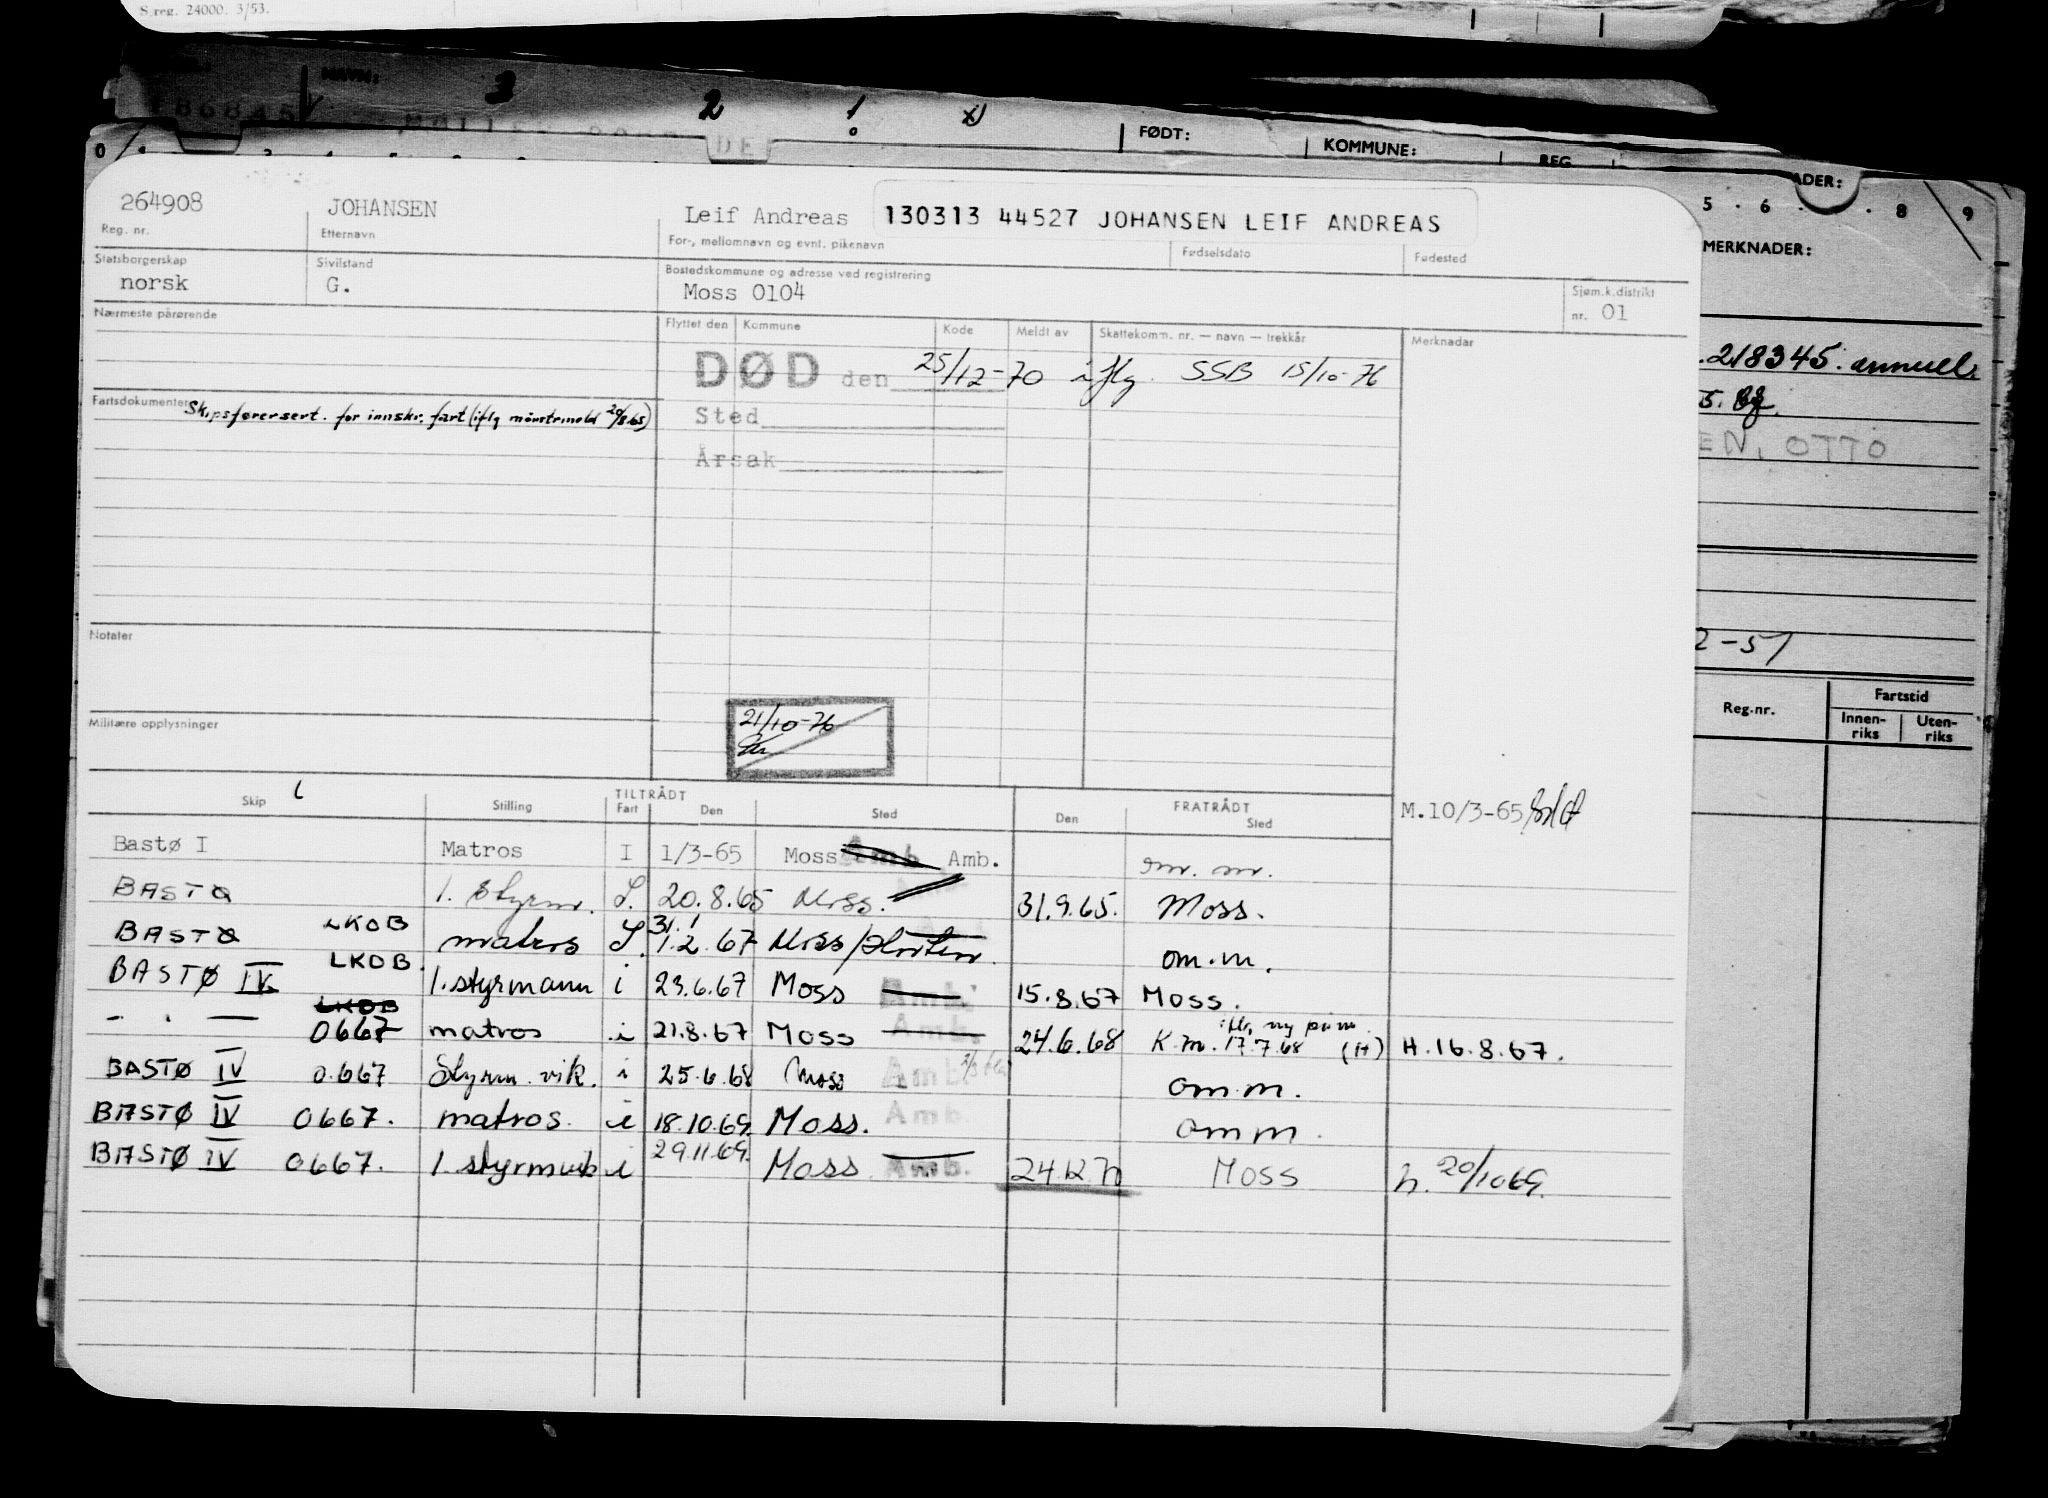 S.reg. 24000. 3/53.
NAVN:
3 2 1
86845
FØDT:
KOMMUNE:
REG
ADER:
5 . 6 . . 8 9
MERKNADER:
.218345. annull.
EN, OTTO
2-51
Reg.nr.
Fartstid
Innen-riks
Uten-riks
264908 JOHANSEN Leif Andreas 130313 44527 JOHANSEN LEIF ANDREAS
Reg. nr. Etternavn For-, mellomnavn og evnt. pikenavn Fødselsdato Fødested
Statsborgerskap Sivilstand Bostedskommune og adresse ved registrering Sjøm.k.distrikt
norsk G. Moss 0104 nr. 01
Nærmeste pårørende Flyttet den Kommune Kode Meldt av Skattekomm. nr. — navn — trekkår Merknadar
DØD den 25/12-70 iflg. SSB 15/10-76
Fartsdokumenter Skipsførersert. for innskr. fart (iflg mønstrmeld 20/8.65)
Sted
Årsak
Notater
Militære opplysninger
21/10-76
TILTRÅDT FRATRÅDT
Skip Stilling Fart Den Sted Den Sted
M.10/3-65
Bastø I Matros I 1/3-65 Moss Amb Amb. om. m.
BASTØ 1. styrm. I. 20.8.65 Moss. 31.9.65. Moss.
BASTØ LKOB matros I. 31.1 1.2.67 Moss/Horten om.m.
BASTØ IV LKOB. 1.styrmann i 23.6.67 Moss Amb. 15.8.67 Moss.
- " - LKOB 0667 matros i 21.8.67 Moss Amb. 24.6.68 K.m. 17.7.68 (H) H.16.8.67.
BASTØ IV 0.667 Styrm. vik. i 25.6.68 Moss Amb. omm.
BASTØ IV 0667. matros. i 18.10.69. Moss. Amb. omm.
BASTØ IV 0667. 1. styrmvik i 29.11.69. Moss. Amb. 24.12.70 Moss h. 20/10 69.